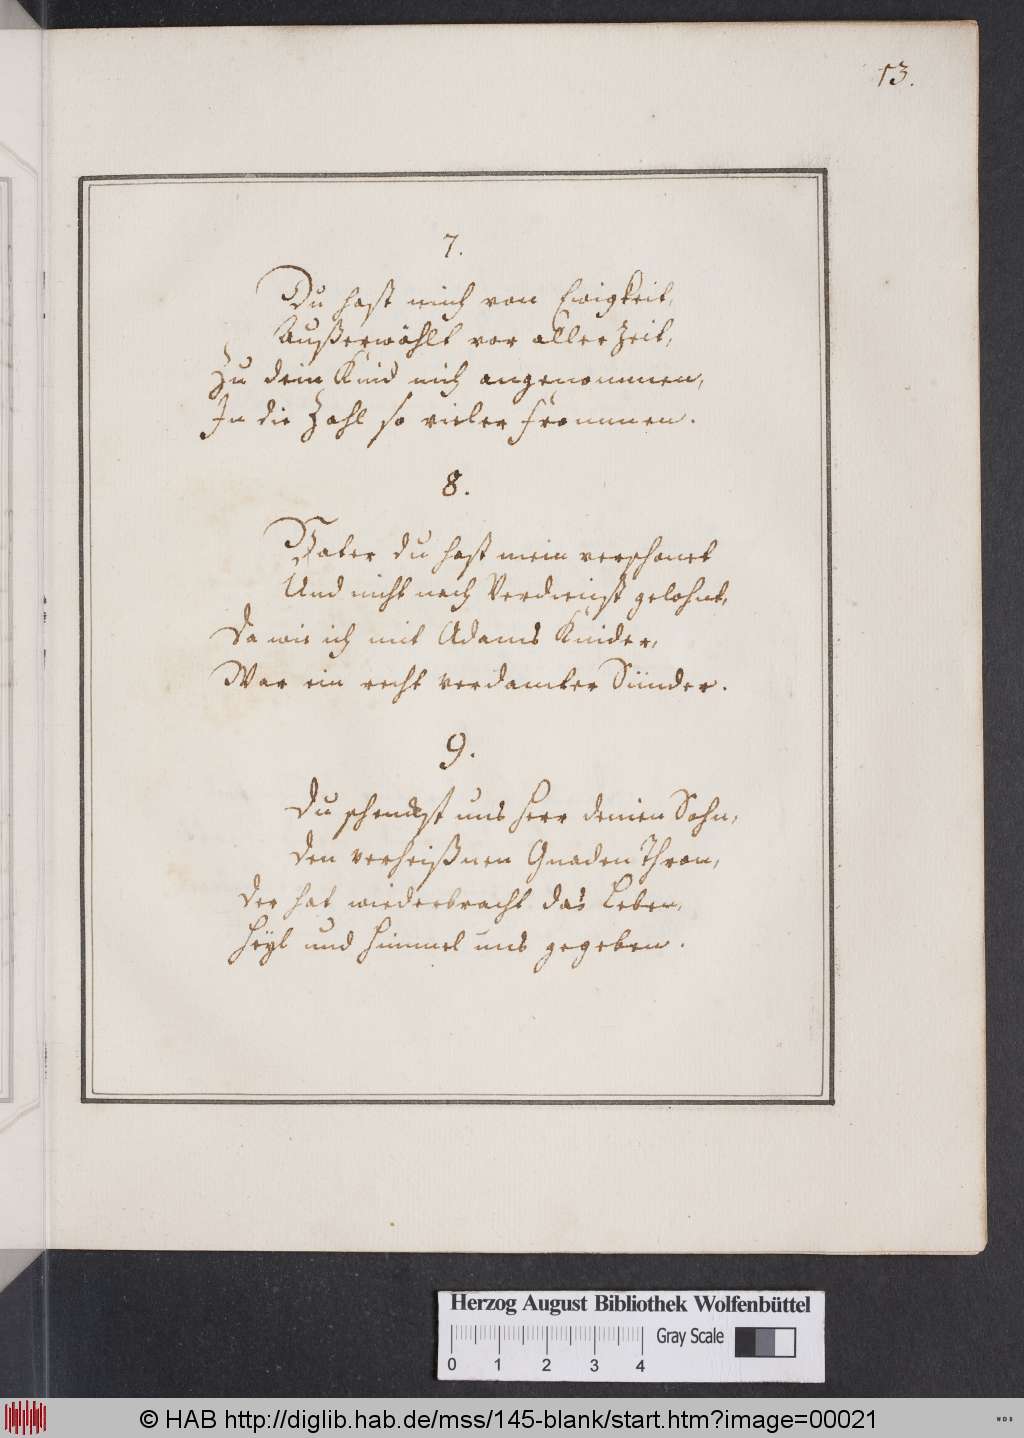 13.
7.
Du hast mich von Ewigkeit,
Außerwählt vor aller Zeit,
Zu dein Kind mich angenommen,
In die Zahl so vieler Frommen.
8.
Vater du hast mein verschonet
Und nicht nach Verdienst gelohnt,
Da wie ich mit Adams Kinder,
War ein recht verdamter Sünder.
9.
Du schenckst uns Herr deinen Sohn,
Den verheißnen Gnaden Thron,
Der hat wiederbracht das Leben,
Heyl und Himmel uns gegeben.
Herzog August Bibliothek Wolfenbüttel
Gray Scale
0 1 2 3 4
© HAB http://diglib.hab.de/mss/145-blank/start.htm?image=00021